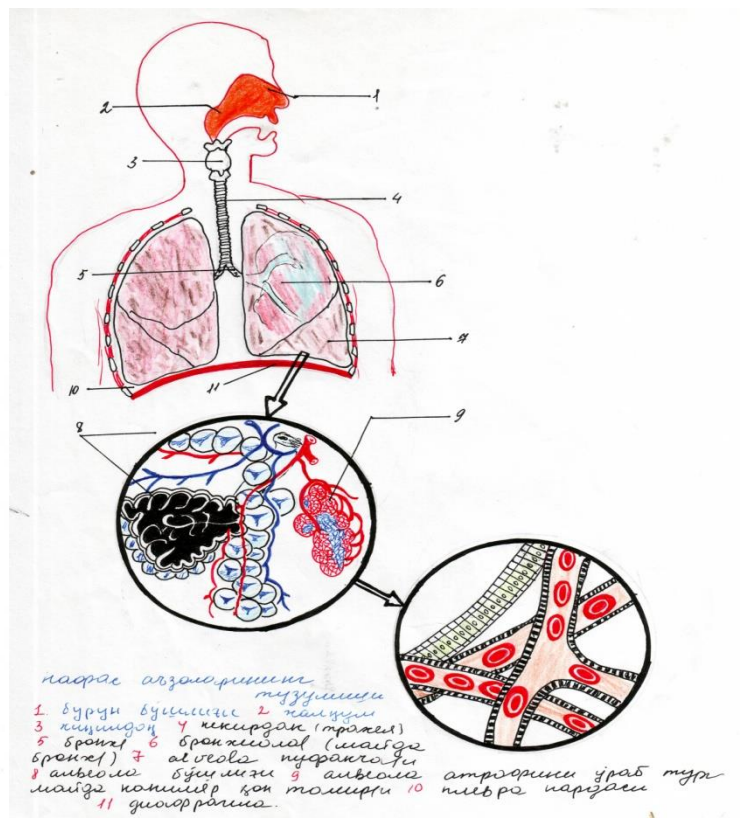 1
2
3
4
5
6
7
10
11
8
9
нафас аъзоларининг
тузулиши
1 бурун бўшлиғи 2 халқум
3 хиқилдоқ 4 кекирдак (трахея)
5 бронх 6 бронхиола (майда
бронх) 7 alveola пуфакчаси
8 альвеола бўшлиғи 9 альвеола атрофини ўраб тур
майда капиляр қон томири 10 плевра пардаси
11 диафрагма.